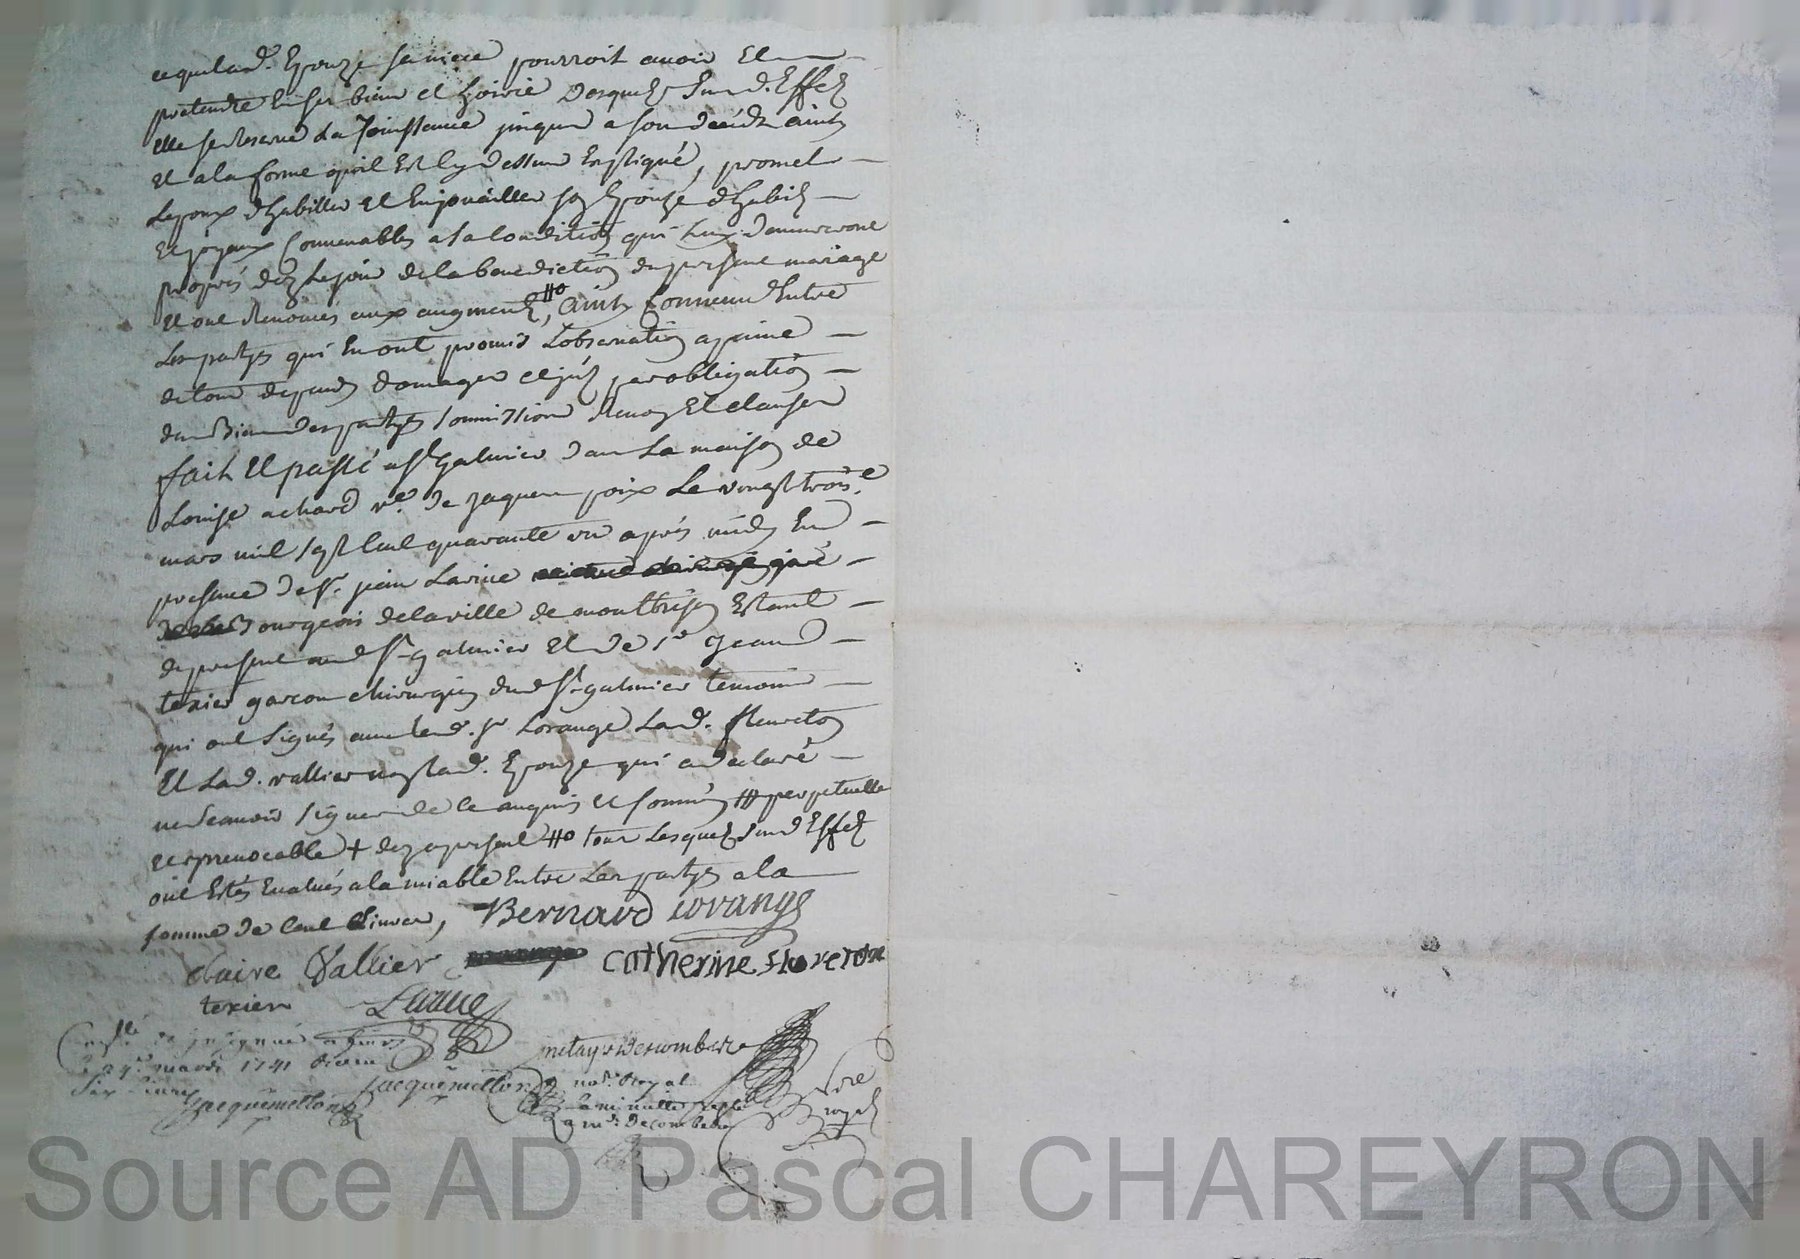 ce quelad. Epouze sa niece pourroit avoir Et
pretendre En ses biens et hoirie desquels Susd. Effets
elle se Reserve La Jouissance jusques a son deceds ainsy
Et a la forme qu'il Est Cy dessus Expliqué, promet
Lepoux d'habiller et Enjouailler son Epouze d'habits
Et joyaux Convenables a sa Condition qui Luy demeureront
propres dez Le jour de la benediction du present mariage
et ont Renoncés aux augments, ##o ainsy Convenu Entre
Les partyes qui En ont promis Lobservation a peine
de tous depends domages et par obligation
des Biens des partyes soumissions Renon Et clauses
fait Et passé a St Galmier dans La maison de
Louise achard ve. de Jaques poix Le vingt trois.e
mars mil sept Cent quarante un apres midy En
presence de Sr. jean Larue
Bourgeois de la ville de montbrison Estant
de present aud St galmier Et de Sr Jean
texier garcon chirurgien dud St galmier temoins
qui ont signés avec led. Sr Lorange Lad. fleureton
Et Lad. vallier non lad. Epouze qui a declaré
ne scavoir signer de ce enquis et sommés ## perpetuelle
et irrevocable + dez a present ##o tous Lesquels susd Effets
ont Estés Evalués a la miable Entre Les partyes a la
somme de Cent Livres, Bernard Lorange
claire Vallier catherine floreton
texier Larue
1741
six livres
Jacquemetton Jacquemetton
not. Royal